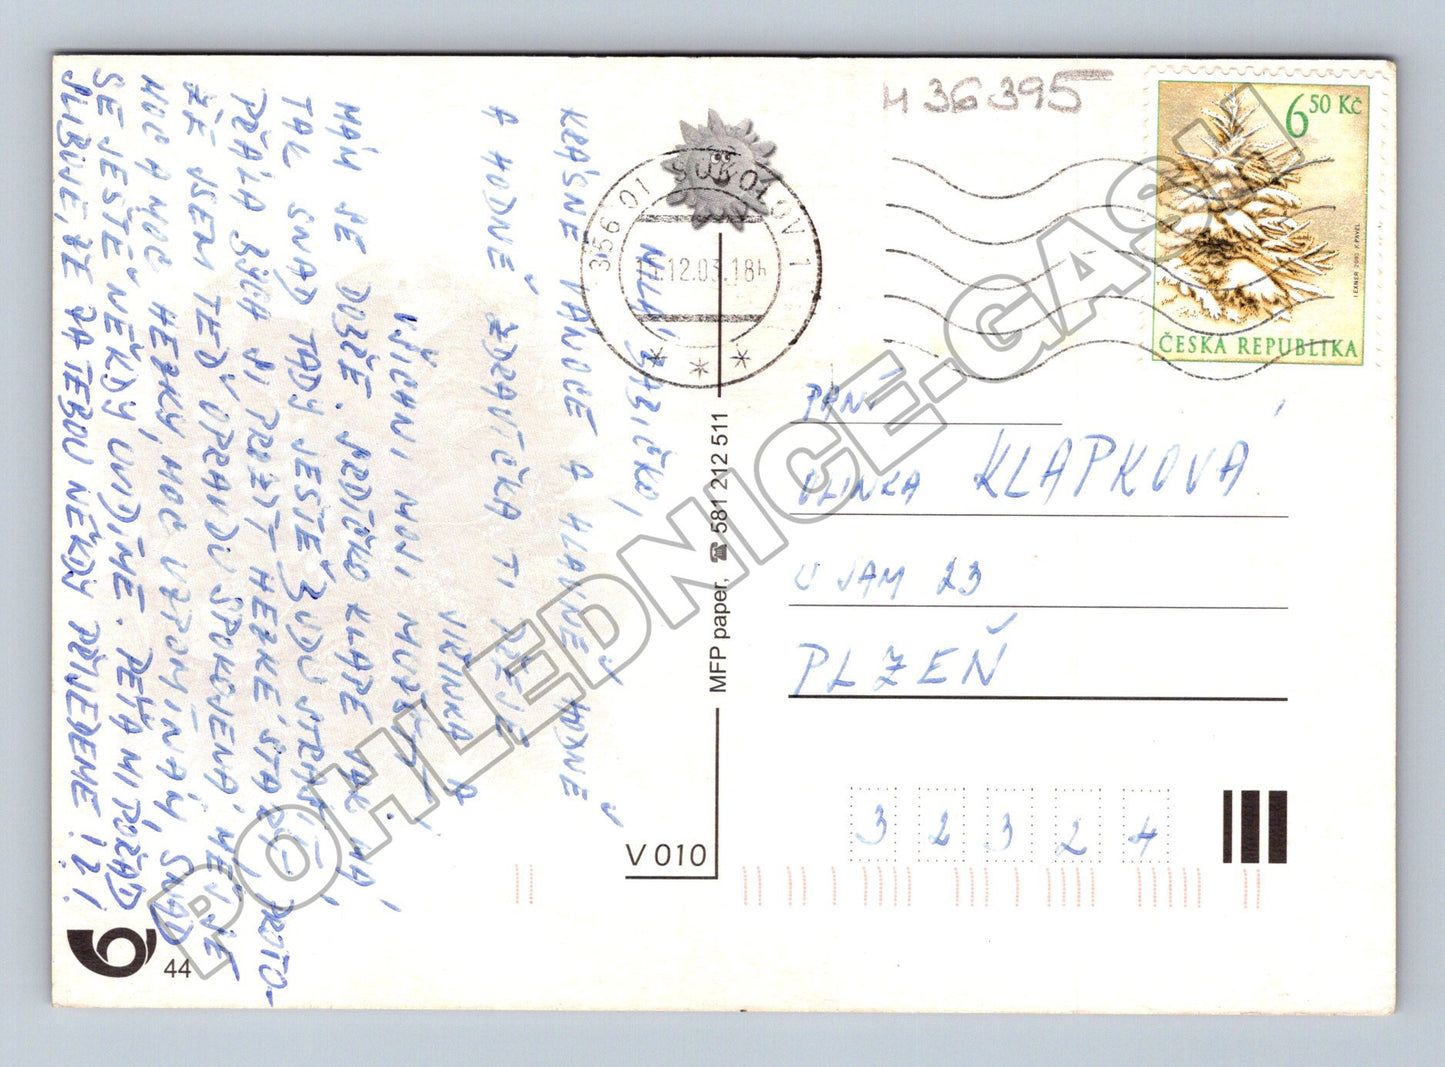 MILÁ BABIČKO,
KRÁSNÉ VÁNOCE A HLAVNĚ HODNĚ
A HODNĚ ZDRAVÍČKA TI PŘEJE
VĚRINKA A
VŠICHNI MOJI
MÁM SE DOBŘE. SRDÍČKO KLAPE JAK MÁ,
TAK SNAD TADY JEŠTĚ BUDU STRAŠIT
PŘÁLA BYCH SI PROŽÍT HEZKÉ STÁŘÍ - PROTO-
ŽE JSEM TEĎ OPRAVDU SPOKOJENÁ. MĚJ SE
MOC A MOC HEZKY, MOC VZPOMÍNÁM, SNAD
SE JEŠTĚ NĚKDY UVIDÍME. PEŤA MI POŘÁD
SLIBUJE, ŽE ZA TEBOU NĚKDY PŘIJEDEME!?!
44
V 010
MFP paper, ☎ 581 212 511
H 36395
356 01 SOKOLOV 1
11.12.03.18h
6 50 Kč
ČESKA REPUBLIKA
PANÍ
KLAPKOVÁ
U JAM 23
PLZEŇ
3 2 3 2 4
POHLEDNICE-CASH